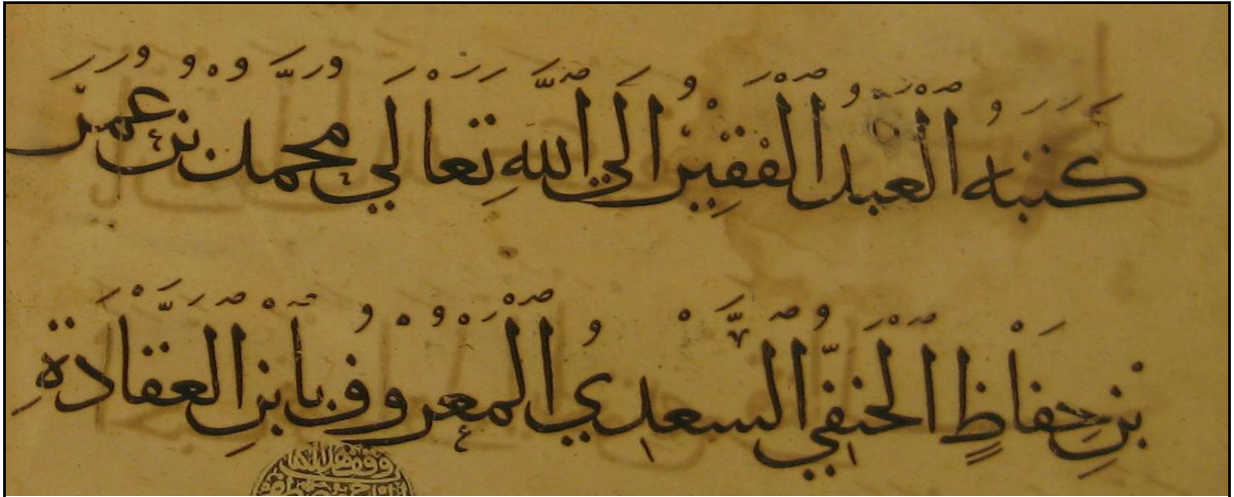 كَتَبَهُ الْعَبْدُ الْفَقِيْرُ الَي اللَّهِ تَعَالَي مُحَمَّدُ بْنُ عُمَرَ
بْنِ حِفَاظٍ الْحَنَفِيُّ السَّعْدِيُ الْمَعْرُوْفُ بِابْنِ العَقَّادَةِ
وقف